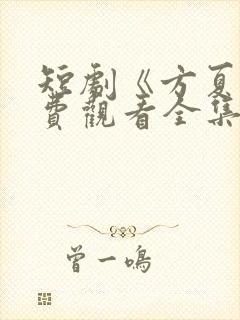 短劇《方夏
費觀看全集
曾一鳴